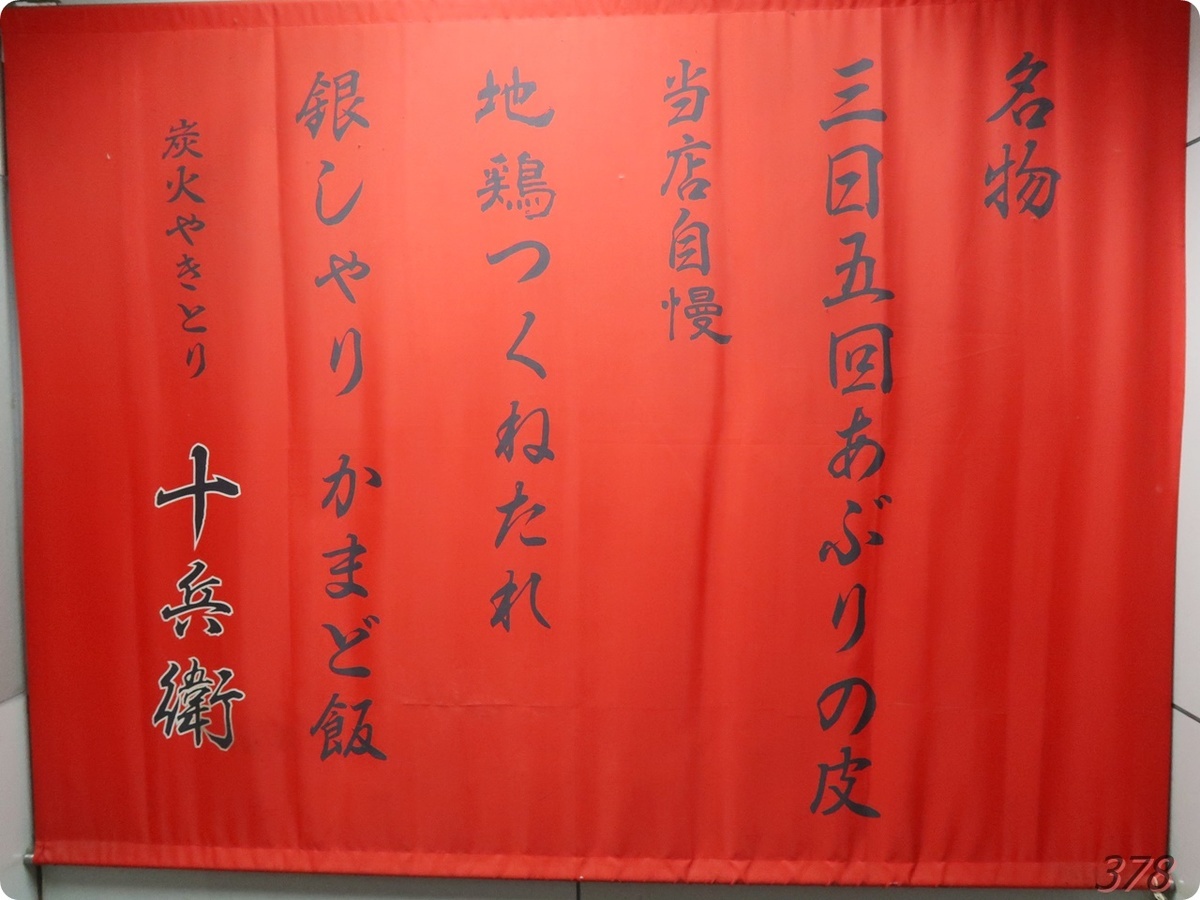 名物
三日五回あぶりの皮
当店自慢
地鶏つくねたれ
銀しゃり かまど飯
炭火やきとり 十兵衛
378